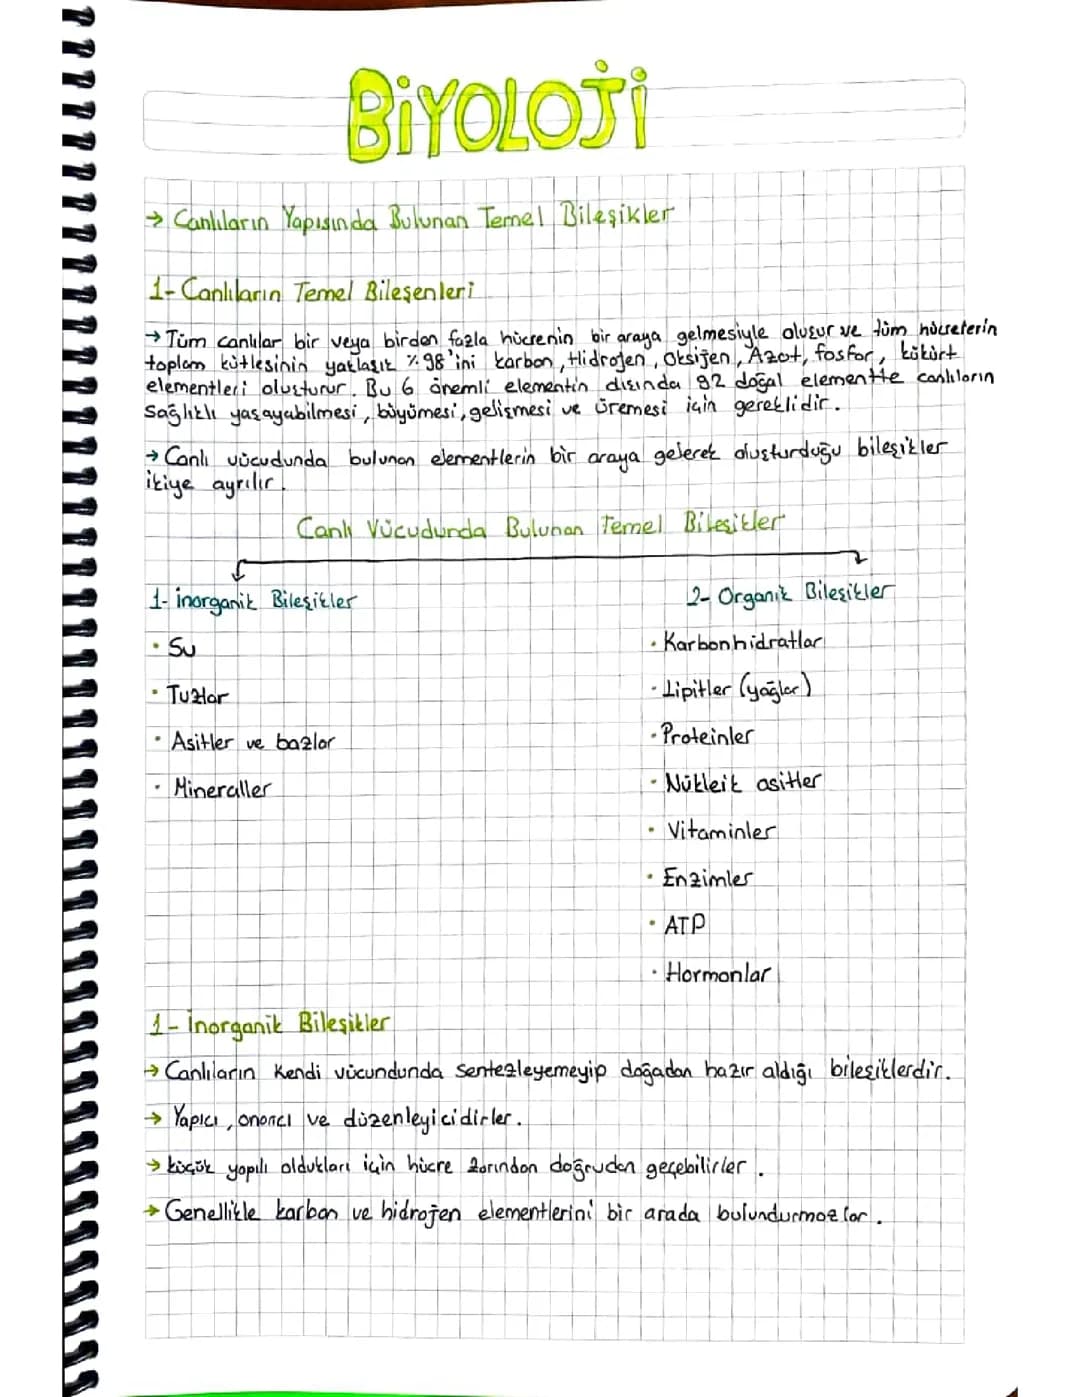 BİYOLOJİ
→ Canlıların Yapısında Bulunan Temel Bileşikler
1- Canlıların Temel Bileşenleri
→ Tüm canlılar bir veya birden fazla hücrenin bir araya gelmesiyle oluşur ve tüm hücrelerin
toplam kütlesinin yaklaşık %98'ini karbon, Hidrojen, Oksijen, Azot, fosfor, kükürt
elementleri oluşturur. Bu 6 önemli elementin dışında 92 doğal elementte canlıların
Sağlıklı yaşayabilmesi, büyümesi, gelişmesi ve üremesi için gereklidir.
→ Canlı vücudunda bulunan elementlerin bir araya gelerek oluşturduğu bileşikler
ikiye ayrılır.
Canlı Vücudunda Bulunan Temel Bileşikler
1- İnorganik Bileşikler
• Su
• Tuzlar
• Asitler ve bazlar
• Mineraller
2- Organik Bileşikler
• Karbonhidratlar
• Lipitler (yağlar)
• Proteinler
• Nükleik asitler
• Vitaminler
• Enzimler
• ATP
• Hormonlar
1- İnorganik Bileşikler
→ Canlıların Kendi vücundunda sentezleyemeyip doğadan hazır aldığı bileşiklerdir.
→ Yapıcı, onarıcı ve düzenleyicidirler.
→ küçük yapılı oldukları için hücre zarından doğrudan geçebilirler.
→ Genellikle karbon ve hidrojen elementlerini bir arada bulundurmazlar.